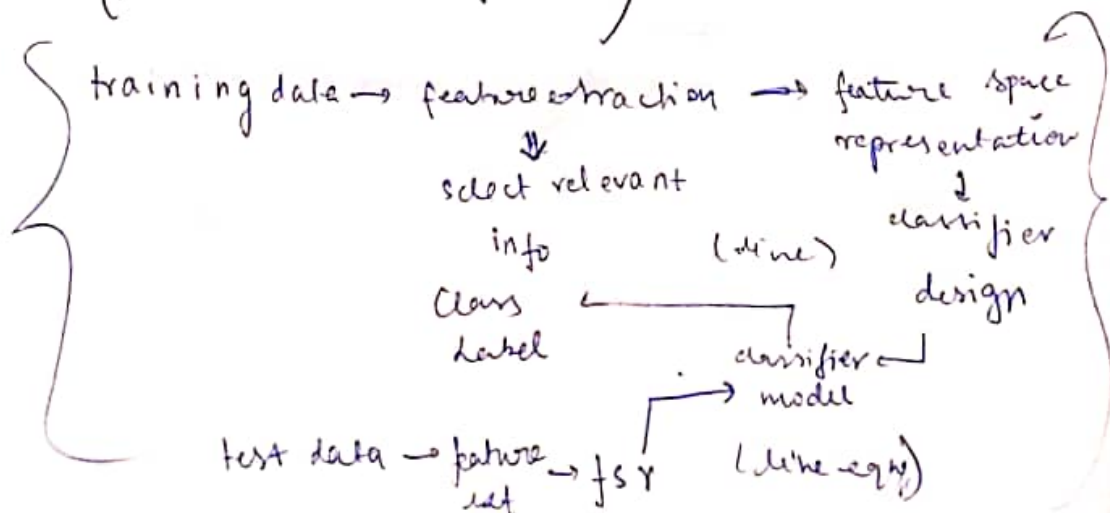 training data → feature extraction → feature space
representation
↓
⇓
select relevant
info
(line)
classifier
design
Class
Label
classifier
model
test data → feature → fsr
ext
(line eqn)